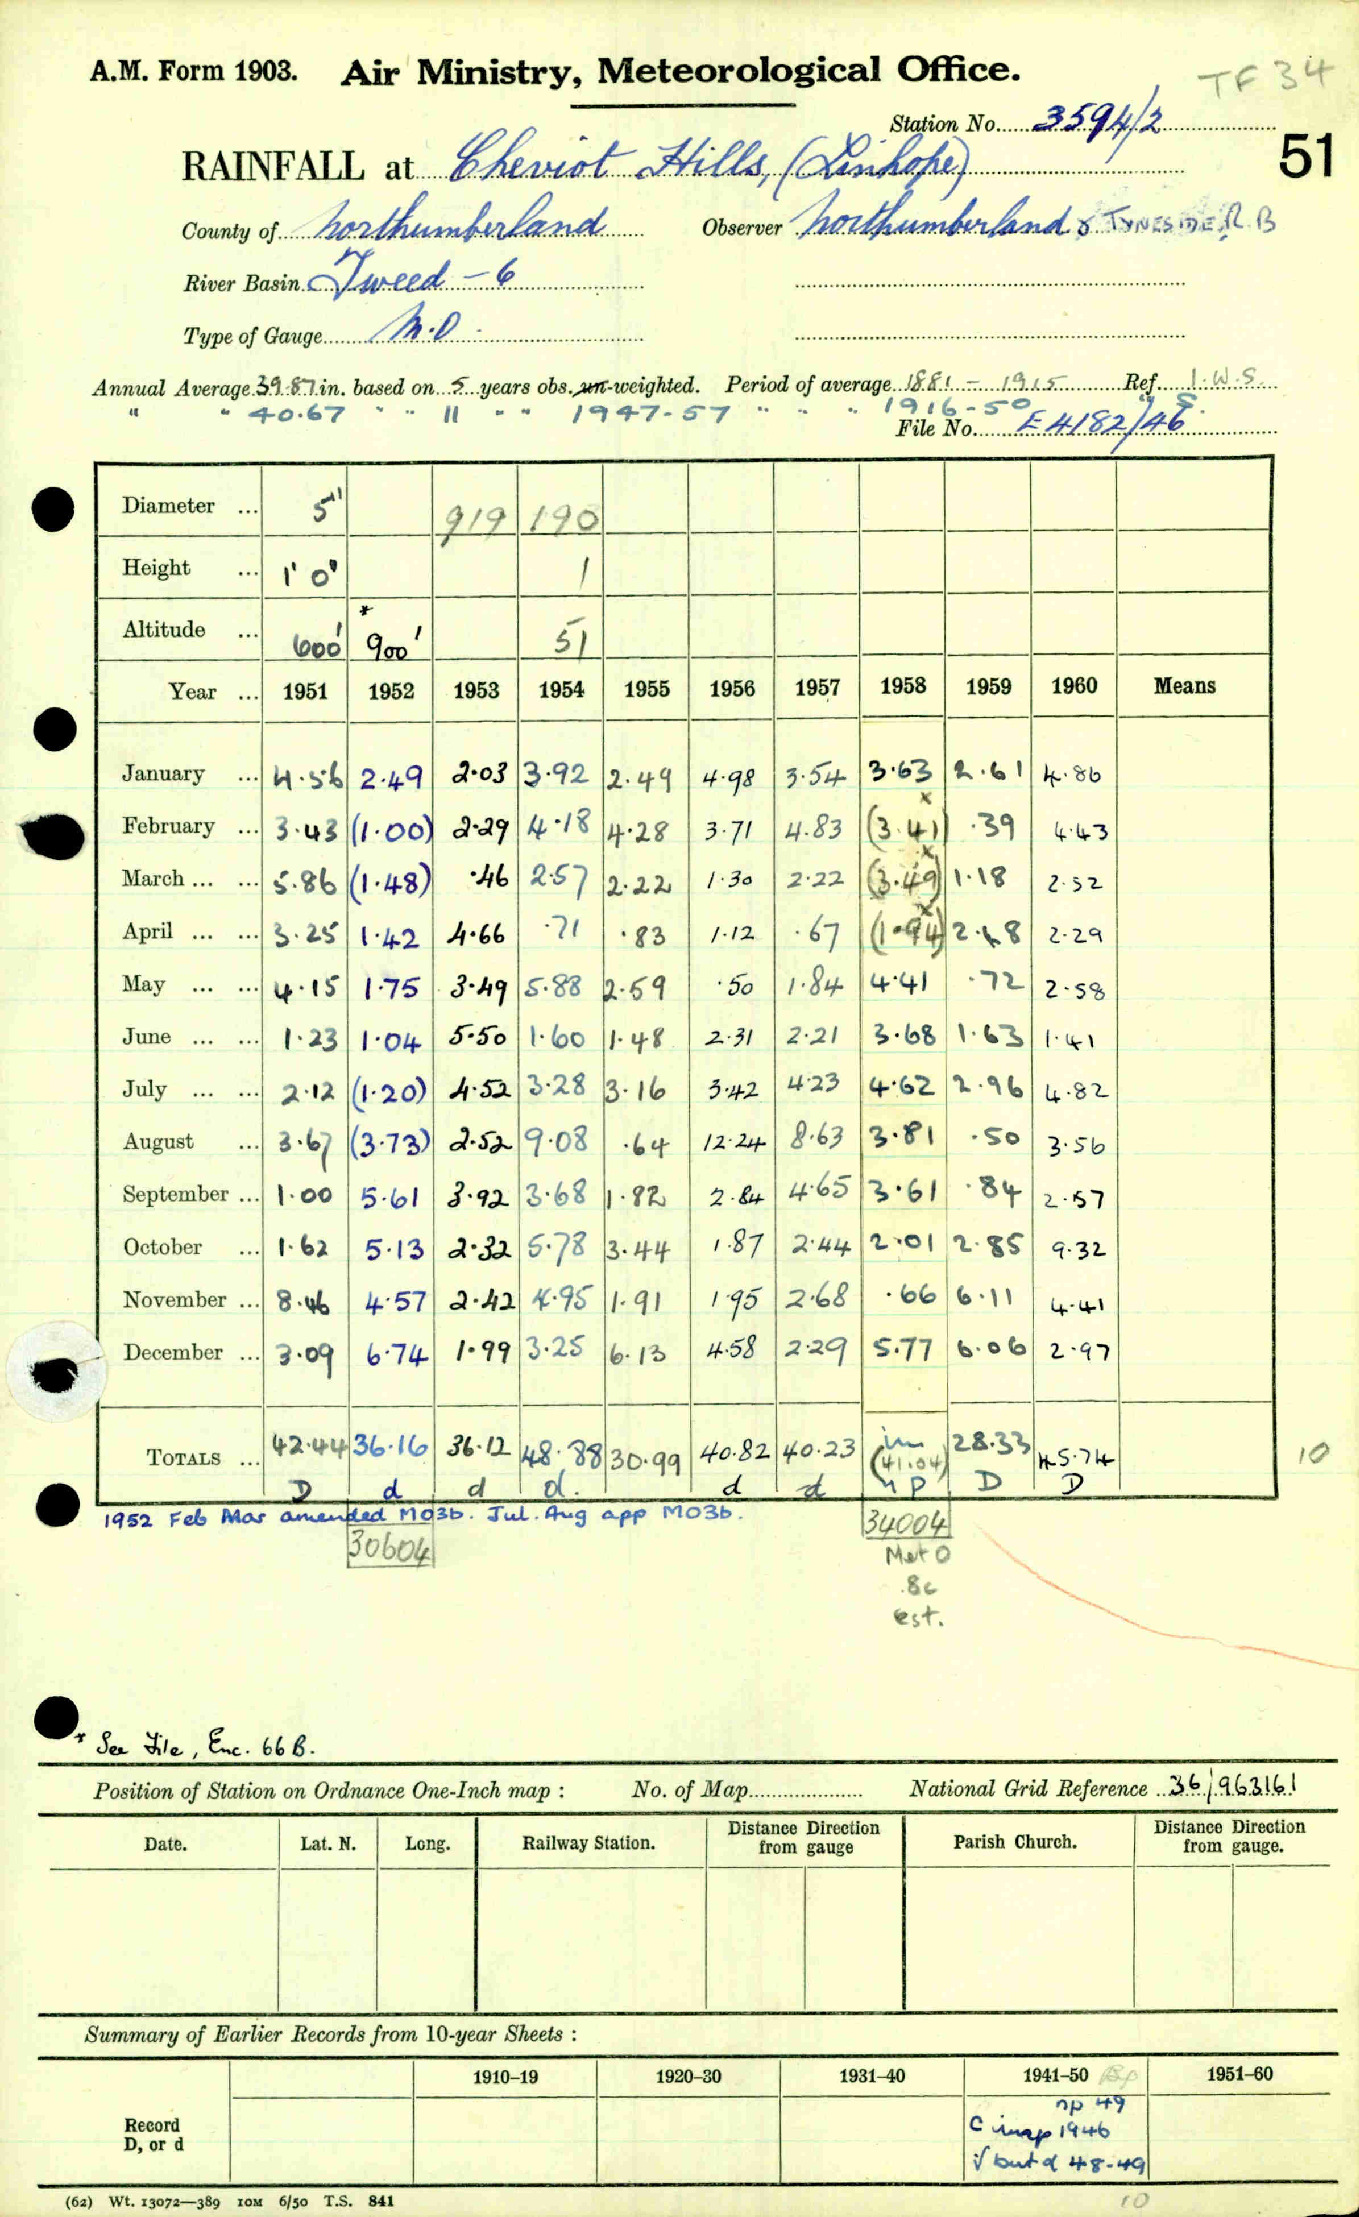 A.M. Form 1903. Air Ministry, Meteorological Office. TF 34
Station No. 3594/2
51
RAINFALL at Cheviot Hills, (Linhope)
County of Northumberland Observer Northumberland & TYNESIDE R.B
River Basin Tweed - 6
Type of Gauge M.O.
Annual Average 39.87 in. based on 5 years obs. un-weighted. Period of average 1881 - 1915 Ref. I.W.S.
" " 40.67 " " 11 " " 1947-57 " " " 1916-50 " S.
File No. E4182/46
Diameter ... 5" 919 190
Height ... 1' 0" 1
Altitude ... 600' *900' 51
Year ... 1951 1952 1953 1954 1955 1956 1957 1958 1959 1960 Means
January ... 4.56 2.49 2.03 3.92 2.49 4.98 3.54 3.63 2.61 4.86
February ... 3.43 (1.00) 2.29 4.18 4.28 3.71 4.83 (3.41)x .39 4.43
March ... ... 5.86 (1.48) .46 2.57 2.22 1.30 2.22 (3.49)x 1.18 2.52
April ... ... 3.25 1.42 4.66 .71 .83 1.12 .67 (1.94)x 2.48 2.29
May ... ... 4.15 1.75 3.49 5.88 2.59 .50 1.84 4.41 .72 2.58
June ... ... 1.23 1.04 5.50 1.60 1.48 2.31 2.21 3.68 1.63 1.41
July ... ... 2.12 (1.20) 4.52 3.28 3.16 3.42 4.23 4.62 2.96 4.82
August ... 3.67 (3.73) 2.52 9.08 .64 12.24 8.63 3.81 .50 3.56
September ... 1.00 5.61 3.92 3.68 1.82 2.84 4.65 3.61 .84 2.57
October ... 1.62 5.13 2.32 5.78 3.44 1.87 2.44 2.01 2.85 9.32
November ... 8.46 4.57 2.42 4.95 1.91 1.95 2.68 .66 6.11 4.41
December ... 3.09 6.74 1.99 3.25 6.13 4.58 2.29 5.77 6.06 2.97
TOTALS ... 42.44 36.16 36.12 48.88 30.99 40.82 40.23 (41.04) 28.33 45.74 10
D d d d. d d np D D
1952 Feb Mar amended MO3b. Jul. Aug app MO3b.
30604 34004
Met O
8c
est.
* See File, Enc. 66B.
Position of Station on Ordnance One-Inch map : No. of Map National Grid Reference 36/963161
Date. Lat. N. Long. Railway Station. Distance from Direction gauge Parish Church. Distance from Direction gauge.
Summary of Earlier Records from 10-year Sheets :
1910–19 1920–30 1931–40 1941–50 1951–60
Record
D, or d
np 49
C inap 1946
√ but d 48-49
(62) Wt. 13072—389 10M 6/50 T.S. 841
10